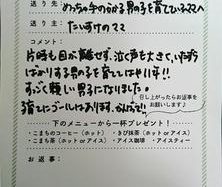 送り先 めっちゃ手のかかる男の子を育てているママへ
送り主: たいすけのママ
コメント:
片時も目が離せず、泣く声も大きく、いたずら
ばかりする男の子を育てるママはハ才!!
すっごく親しい男の子になりました。
ゴールはあります、がんばって!!
召し上がったらお返事を
お願いします♪
下のメニューから一杯プレゼント!
・こまちのコーヒー(ホット) ・きび抹茶(ホット or アイス)
・こまち茶(ホット or アイス) ・アイス珈琲 ・アイスティー
お返事: